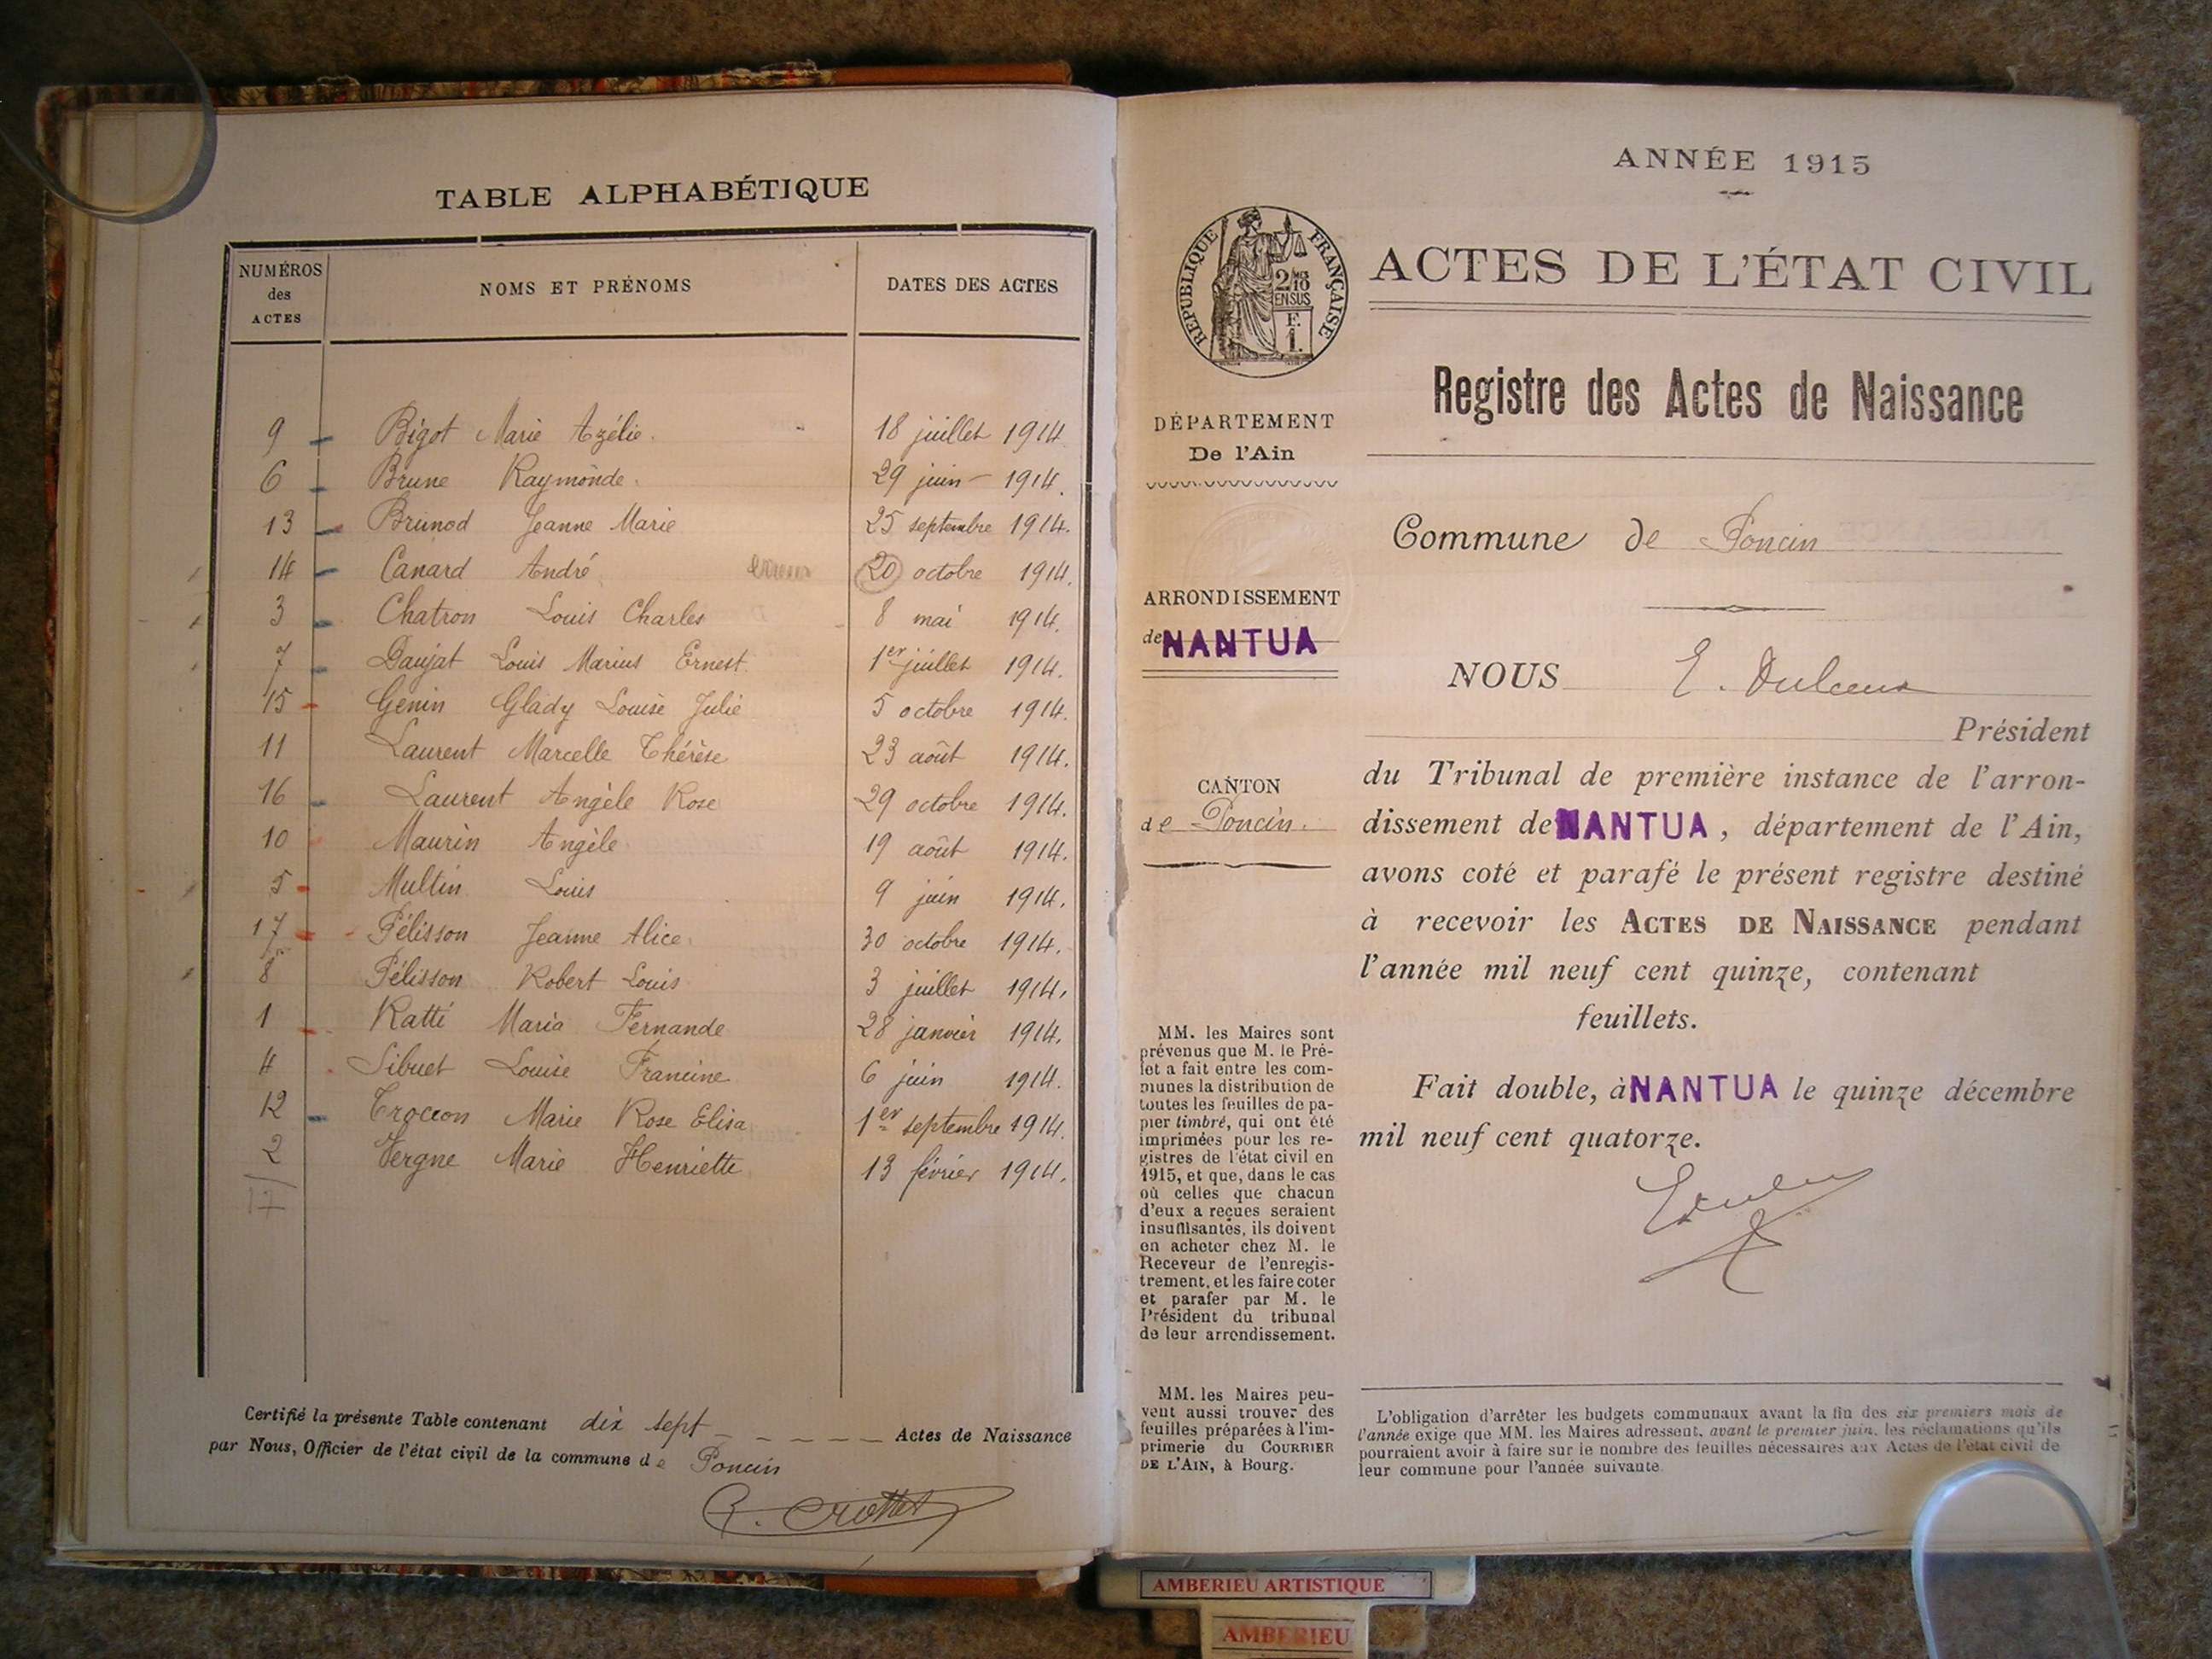 TABLE ALPHABÉTIQUE
NUMÉROS des ACTES NOMS ET PRÉNOMS DATES DES ACTES
9 Bigot Marie Azélie. 18 juillet 1914
6 Brune Raymonde. 29 juin 1914.
13 Brunod Jeanne Marie 25 septembre 1914.
14 Canard André 20 octobre 1914.
3 Chatron Louis Charles 8 mai 1914.
7 Daujat Louis Marius Ernest. 1er juillet 1914.
15 Genin Glady Louise Julie 5 octobre 1914.
11 Laurent Marcelle Thérèse 23 août 1914.
16 Laurent Angèle Rose 29 octobre 1914.
10 Maurin Angèle 19 août 1914.
5 Multin Louis 9 juin 1914.
17 Pélisson Jeanne Alice. 30 octobre 1914.
8 Pélisson Robert Louis 3 juillet 1914.
1 Ratti Maria Fernande 28 janvier 1914.
4 Sibuet Louise Francine 6 juin 1914.
12 Troccon Marie Rose Elisa 1er septembre 1914.
2 Vergne Marie Henriette 13 février 1914.
17
Certifié la présente Table contenant dix sept Actes de Naissance
par Nous, Officier de l'état civil de la commune de Poncin
ANNÉE 1915
RÉPUBLIQUE FRANÇAISE
2/10 MES
EN SUS
F.
1.
ACTES DE L'ÉTAT CIVIL
Registre des Actes de Naissance
DÉPARTEMENT
De l'Ain
Commune de Poncin
ARRONDISSEMENT
de NANTUA
NOUS E.
Président
CANTON
de Poncin.
du Tribunal de première instance de l'arron-
dissement de NANTUA, département de l'Ain,
avons coté et parafé le présent registre destiné
à recevoir les ACTES DE NAISSANCE pendant
l'année mil neuf cent quinze, contenant
feuillets.
Fait double, à NANTUA le quinze décembre
mil neuf cent quatorze.
MM. les Maires sont
prévenus que M. le Pré-
fet a fait entre les com-
munes la distribution de
toutes les feuilles de pa-
pier timbré, qui ont été
imprimées pour les re-
gistres de l'état civil en
1915, et que, dans le cas
où celles que chacun
d'eux a reçues seraient
insuffisantes, ils doivent
en acheter chez M. le
Receveur de l'enregis-
trement, et les faire coter
et parafer par M. le
Président du tribunal
de leur arrondissement.
MM. les Maires peu-
vent aussi trouver des
feuilles préparées à l'im-
primerie du COURRIER
DE L'AIN, à Bourg.
L'obligation d'arrêter les budgets communaux avant la fin des six premiers mois de
l'année exige que MM. les Maires adressent, avant le premier juin, les réclamations qu'ils
pourraient avoir à faire sur le nombre des feuilles nécessaires aux Actes de l'état civil de
leur commune pour l'année suivante.
AMBERIEU ARTISTIQUE
AMBERIEU